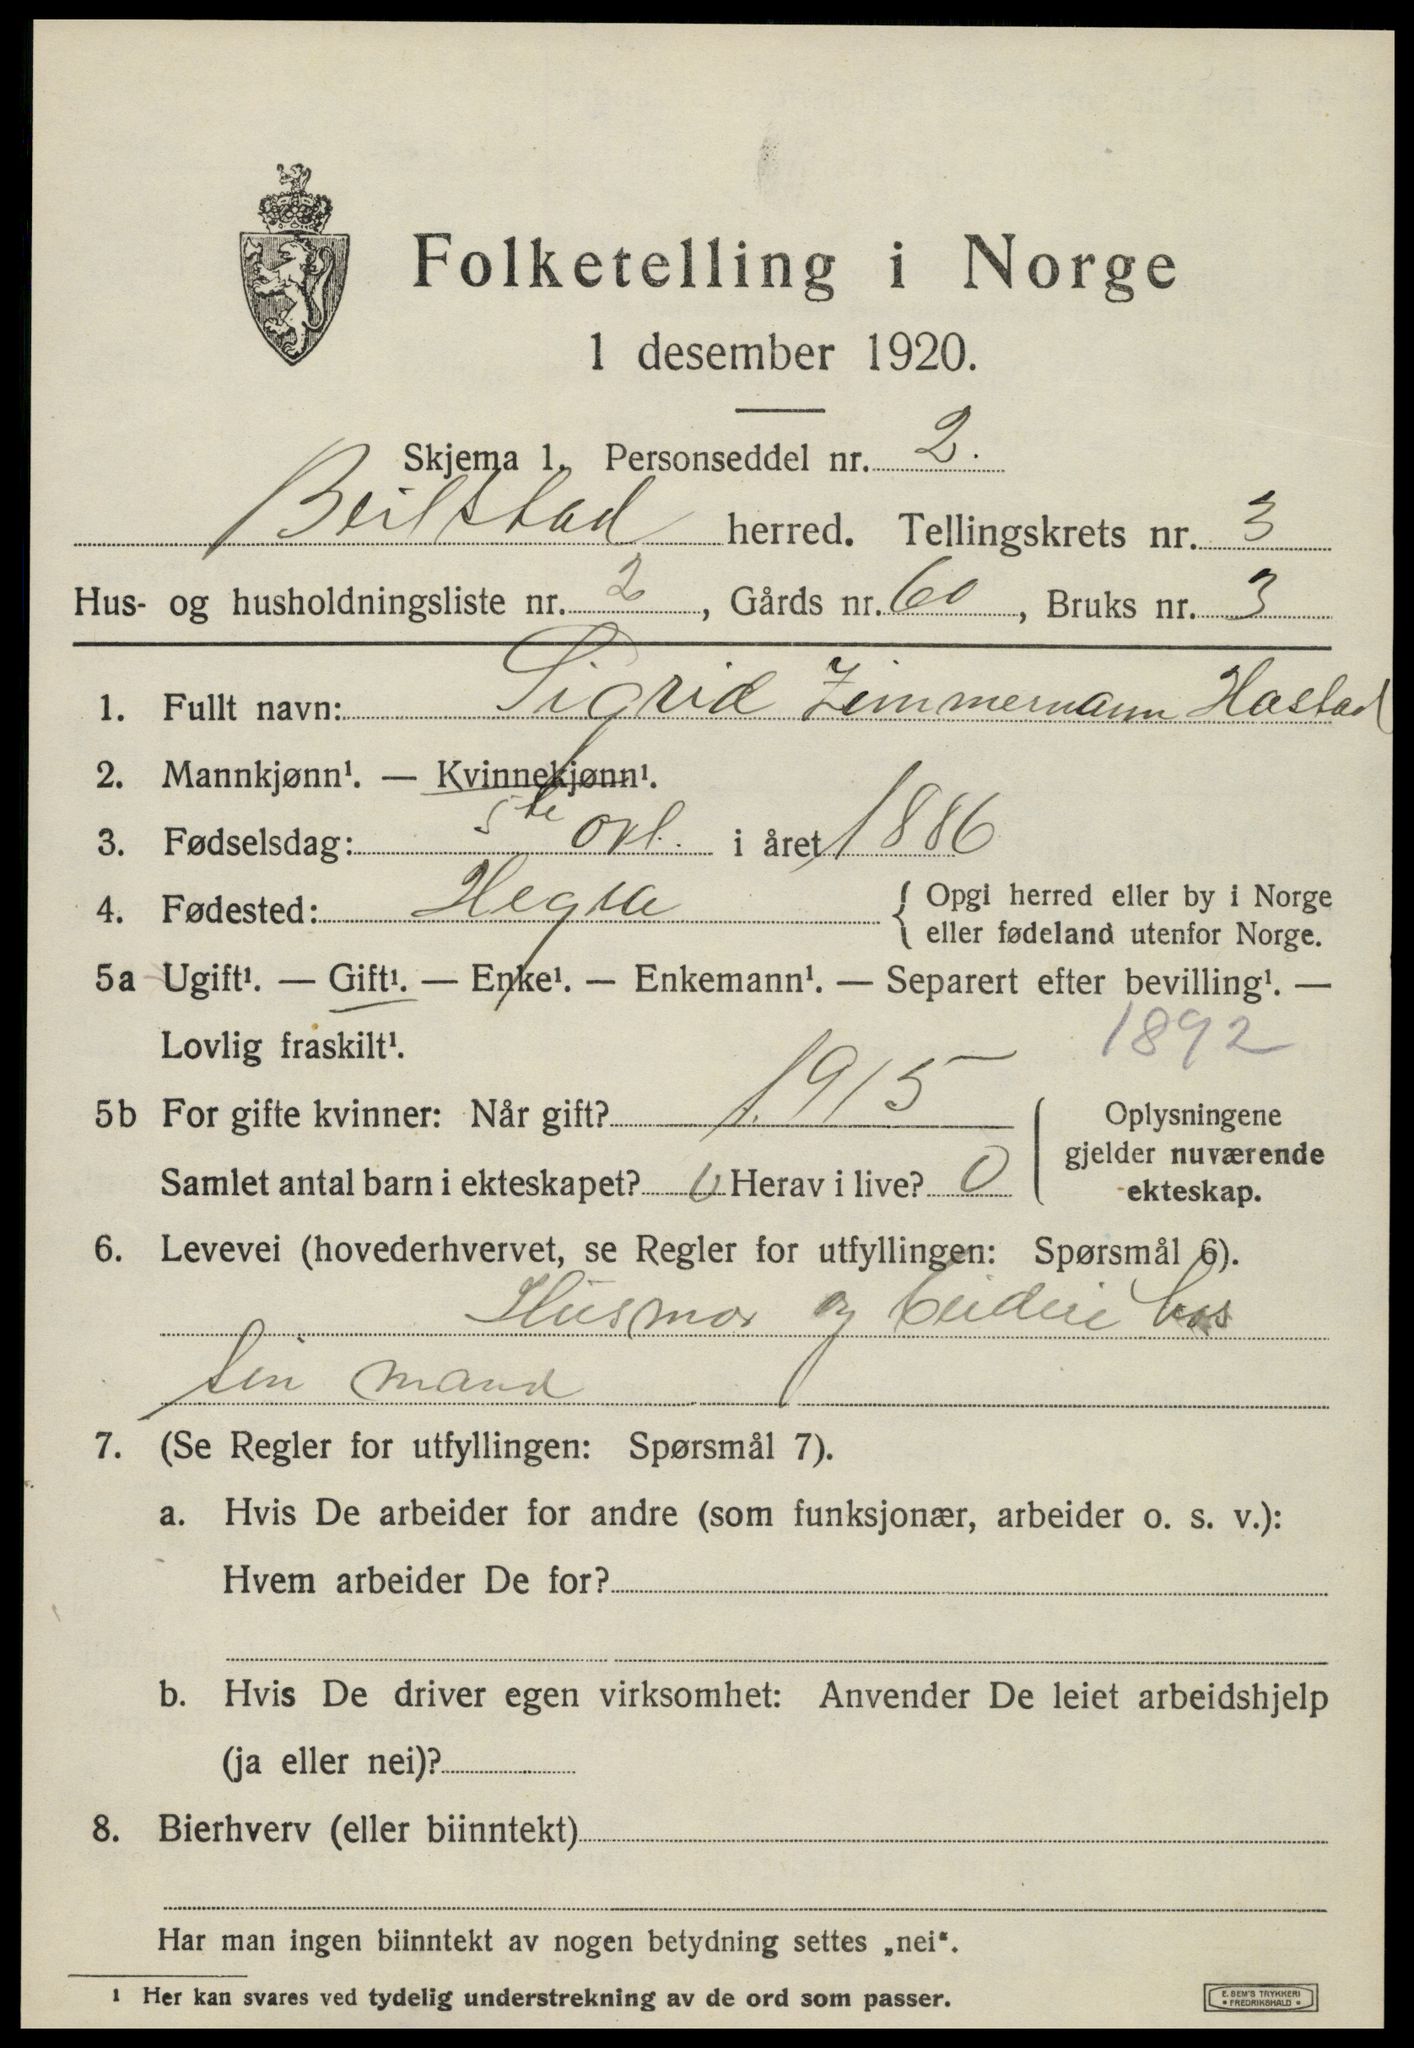 Folketelling i Norge
1 desember 1920.
Skjema 1. Personseddel nr. 2.
Beitstad herred. Tellingskrets nr. 3
Hus- og husholdningsliste nr. 2, Gårds nr. 60, Bruks nr. 3
1. Fullt navn: Sigrid Zimmermann Hastad
2. Mannkjønn¹. — Kvinnekjønn¹.
3. Fødselsdag: 5te okt. i året 1886
4. Fødested: Hegra { Opgi herred eller by i Norge
eller fødeland utenfor Norge.
5a Ugift¹. — Gift¹. — Enke¹. — Enkemann¹. — Separert efter bevilling¹. —
Lovlig fraskilt¹. 1892
5b For gifte kvinner: Når gift? 1915 { Oplysningene
gjelder nuværende
Samlet antal barn i ekteskapet? 0 Herav i live? 0 ekteskap.
6. Levevei (hovederhvervet, se Regler for utfyllingen: Spørsmål 6).
Husmor og hos
sin mand
7. (Se Regler for utfyllingen: Spørsmål 7).
a. Hvis De arbeider for andre (som funksjonær, arbeider o. s. v.):
Hvem arbeider De for?
b. Hvis De driver egen virksomhet: Anvender De leiet arbeidshjelp
(ja eller nei)?
8. Bierhverv (eller biinntekt)
Har man ingen biinntekt av nogen betydning settes „nei“.
¹ Her kan svares ved tydelig understrekning av de ord som passer.
E. SEM'S TRYKKERI
• FREDRIKSHALD •